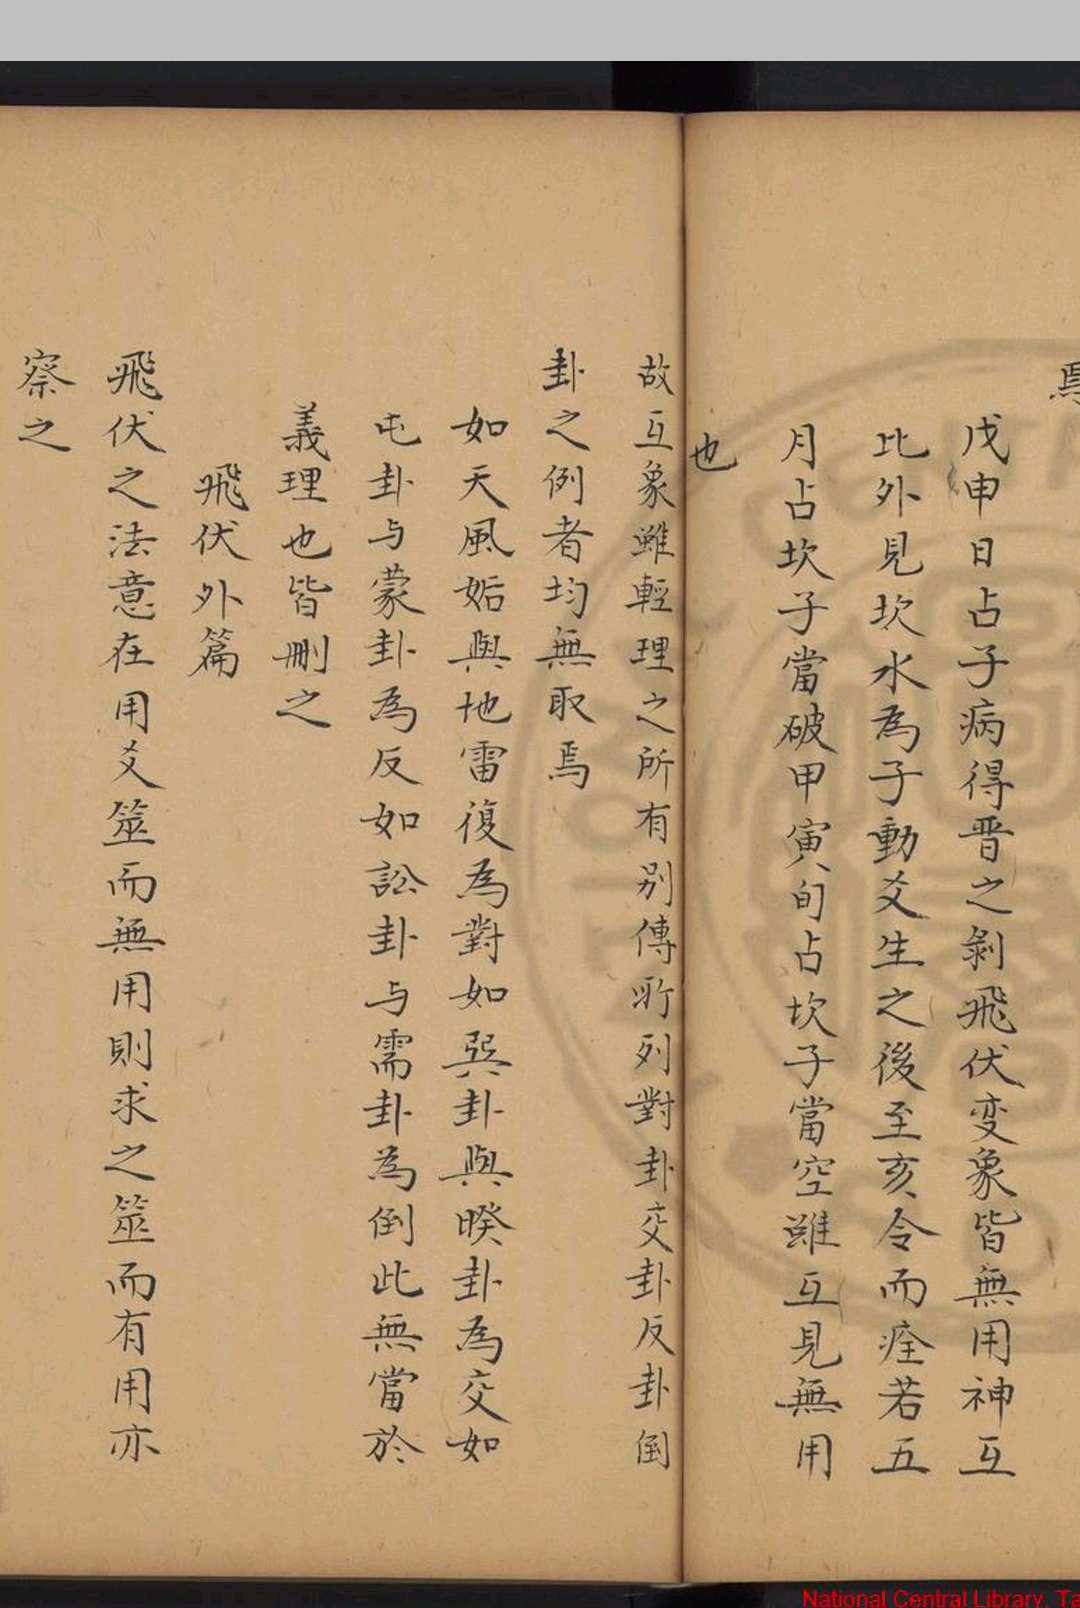 焉
戊申日占子病得晋之剝飛伏变象皆無用神互
比外見坎水為子動爻生之後至亥令而痊若五
月占坎子當破甲寅旬占坎子當空雖互見無用
也
故互象雖輕理之所有別傳所列對卦交卦反卦倒
卦之例者均無取焉
如天風姤與地雷復為對如巽卦與暌卦為交如
屯卦与蒙卦為反如訟卦与需卦為倒此無當於
義理也皆刪之
飛伏外篇
飛伏之法意在用爻筮而無用則求之筮而有用亦
察之
National Central Library, Ta